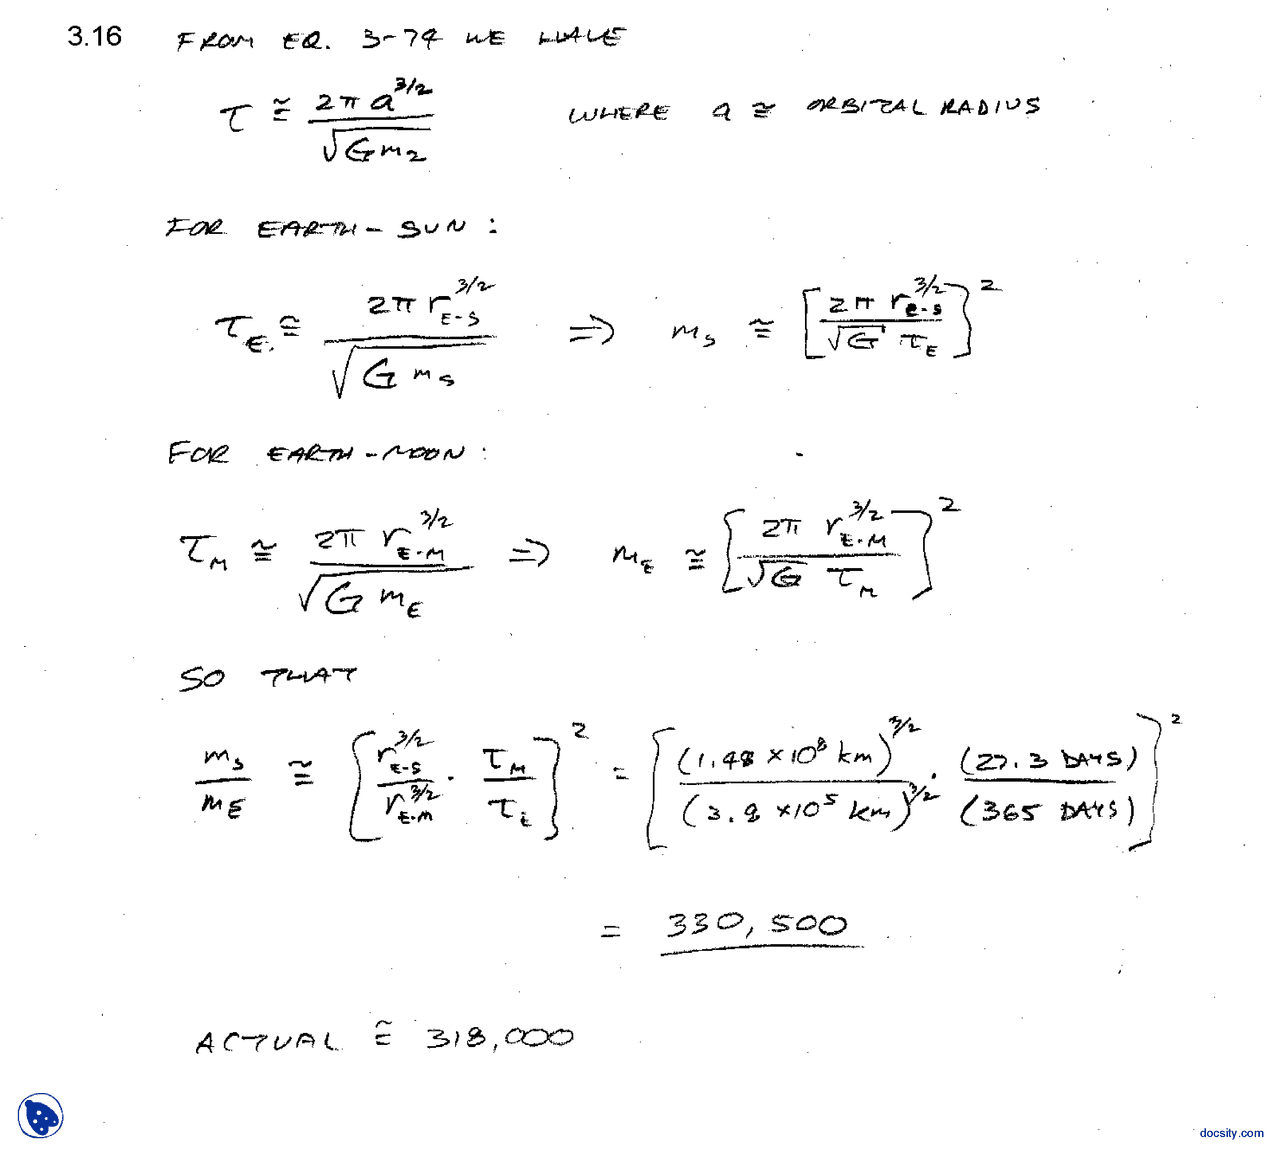 3.16 FROM EQ. 3-74 WE HAVE
τ ≅ 2π a^{3/2} / √(G m₂) WHERE a ≅ ORBITAL RADIUS
FOR EARTH-SUN:
τ_E ≅ 2π r_{E-S}^{3/2} / √(G m_S) ⇒ m_S ≅ [2π r_{e-s}^{3/2} / (√G τ_E)]²
FOR EARTH-MOON:
τ_M ≅ 2π r_{E-M}^{3/2} / √(G m_E) ⇒ m_E ≅ [2π r_{E-M}^{3/2} / (√G τ_M)]²
SO THAT
m_S / m_E ≅ [r_{E-S}^{3/2} / r_{E-M}^{3/2} · τ_M / τ_E]² = [(1.48 × 10⁸ km)^{3/2} / (3.8 × 10⁵ km)^{3/2} · (27.3 DAYS) / (365 DAYS)]²
= 330,500
ACTUAL ≅ 318,000
docsity.com